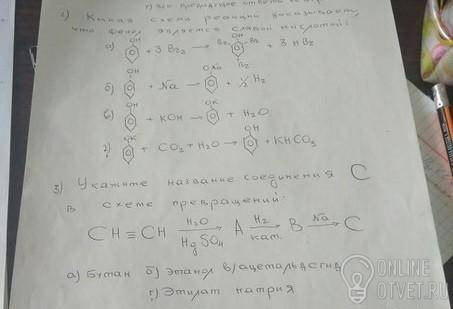 2) Какая схема реакции доказывает,
что фенол является слабой кислотой:
а) OH + 3 Br₂ → Br OH Br Br + 3 HBr
б) OH + Na → ONa + ½ H₂
в) OH + KOH → OK + H₂O
г) OK + CO₂ + H₂O → OH + KHCO₃
3) Укажите название соединения C
в схеме превращений:
CH≡CH H₂O HgSO₄ → A H₂ кат. → B Na → C
а) Бутан б) Этанол в) ацетальдегид
г) Этилат натрия
ONLINE
OTVET.RU